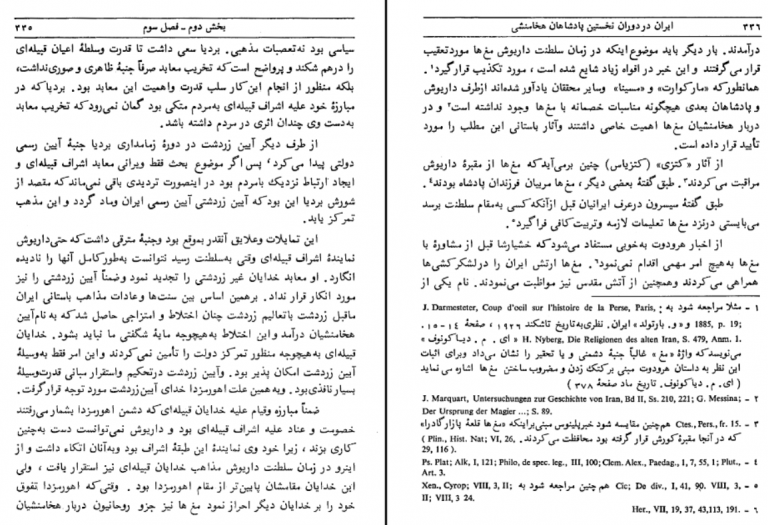 ۳۳۵ بخش دوم ـ فصل سوم
سیاسی بود نه‌تعصبات مذهبی. بردیا سعی داشت تا قدرت وسلطهٔ اعیان قبیله‌ای
را درهم شکند و پرواضح است‌که تخریب معابد صرفاً جنبهٔ ظاهری و صوری‌نداشت،
بلکه منظور از انجام این‌کار سلب قدرت واهمیت این معابد بود. بردیاکه در
مبارزهٔ خود علیه اشراف قبیله‌ای به‌مردم متکی بود گمان نمی‌رودکه تخریب معابد
به‌دست وی چندان اثری در مردم داشته باشد.
از طرف دیگر آیین زردشت در دورهٔ زمامداری بردیا جنبهٔ آیین رسمی
دولتی پیدا می‌کرد٬ پس اگر موضوع بحث فقط ویرانی معابد اشراف قبیله‌ای و
ایجاد ارتباط نزدیك بامردم بود دراینصورت تردیدی باقی نمی‌ماندکه مقصد از
شورش بردیا این بودکه آیین زردشتی آیین رسمی ایران وماد گردد و این مذهب
تمرکز یابد.
این تمایلات وعلایق آنقدر به‌موقع بود وجنبهٔ مترقی داشت‌که حتی‌داریوش
نمایندهٔ اشراف قبیله‌ای وقتی به‌سلطنت رسید نتوانست به‌طورکامل آنها را نادیده
انگارد. او معابد خدایان غیر زردشتی را تجدید نمود وضمناً آیین زردشتی را نیز
مورد انکار قرار نداد. برهمین اساس بین سنت‌ها وعادات مذاهب باستانی ایران
ماقبل زردشت باتعالیم زردشت چنان اختلاط و امتزاجی حاصل شدکه به نام‌آیین
هخامنشیان درآمد و این اختلاط به‌هیچوجه مایهٔ شگفتی ما نباید بشود. خدایان
قبیله‌ای به‌هیچوجه منظور تمرکز دولت را تأمین نمی‌کردند و این امر فقط به‌وسیلهٔ
آیین زردشت امکان پذیر بود. وآیین زردشت درتحکیم واستقرار مبانی قدرت‌وسیلهٔ
بسیار نافذی‌بود. وبه‌همین علت اهورمزدا خدای آیین‌زردشت مورد توجه قرارگرفت.
ضمناً مبارزه وقیام علیه خدایان قبیله‌ای‌که دشمن اهورمزدا بشمار می‌رفتند
خصومت و عناد علیه اشراف قبیله‌ای بود و داریوش نمی‌توانست دست به‌چنین
کاری بزند، زیرا خود وی نمایندهٔ این طبقهٔ اشراف بود وبه‌آنان اتکاء داشت و از
اینرو در زمان سلطنت داریوش مذاهب خدایان قبیله‌ای نیز استقرار یافت، ولی
این خدایان مقامشان پایین‌تر از مقام اهورمزدا بود. وقتی‌که اهورمزدا تفوق
خود را برخدایان دیگر احراز نمود مغ‌ها نیز جزو روحانیون دربار هخامنشیان
ایران در دوران نخستین پادشاهان هخامنشی ۳۳۶
درآمدند. بار دیگر باید موضوع اینکه در زمان سلطنت داریوش مغ‌ها موردتعقیب
قرار می‌گرفتند و این خبر در افواه زیاد شایع شده است، مورد تکذیب قرارگیرد۱.
همانطورکه «مارکوارت» و «مسینا» وسایر محققان یادآور شده‌اند ازطرف داریوش
و پادشاهان بعدی هیچگونه مناسبات خصمانه با مغ‌ها وجود نداشته است۲ و در
دربار هخامنشیان مغ‌ها اهمیت خاصی داشتند وآثار باستانی این مطلب را مورد
تأیید قرار داده است.
از آثار «کتزی» (کتزیاس) چنین برمی‌آیدکه مغ‌ها از مقبرهٔ داریوش
مراقبت می‌کردند۳. طبق گفتهٔ بعضی دیگر، مغ‌ها مربیان فرزندان پادشاه بودند۴.
طبق گفتهٔ سیسرون درعرف ایرانیان قبل ازآنکه‌کسی به‌مقام سلطنت برسد
می‌بایستی درنزد مغ‌ها تعلیمات لازمه وتربیت‌کافی فراگیرد۵.
از اخبار هرودوت به‌خوبی مستفاد می‌شودکه خشیارشا قبل از مشاوره با
مغ‌ها به‌هیچ امر مهمی اقدام نمی‌نمود۶. مغ‌ها ارتش ایران را درلشکرکشی‌ها
همراهی می‌کردند وهمچنین از آتش مقدس نیز مواظبت می‌نمودند. نام یکی از
۱ ـ مثلا مراجعه شود به : J. Darmesteter, Coup d'oeil sur l'histoire de la Perse, Paris,
1885, p. 19; و «و. بارتولد» ایران. نظری‌به‌تاریخ تاشکند ۱۹۲۶، صفحهٔ ۱۴ـ۱۵.
H. Nyberg, Die Religionen des alten Iran, S. 479, Anm. 1. «ای . م . دیاکونوف»
می‌نویسدکه واژهٔ «مغ» غالباً جنبهٔ دشمنی و یا تحقیر را نشان می‌داد وبرای اثبات
این نظر به داستان هرودوت مبنی برکتك زدن و مضروب ساختن مغ‌ها اشاره می نماید
(ای . م . دیاکونوف. تاریخ ماد صفحهٔ ۳۷۸)
۲ ـ J. Marquart, Untersuchungen zur Geschichte von Iran, Bd II, Ss. 210, 221; G. Messina;
Der Ursprung der Magier ...; S. 89.
۳ ـ Ctes., Pers., fr. 15. هم‌چنین مقایسه شود خبرپلینوس مبنی‌براینکه «مغ‌ها قلعهٔ پازارگادرا»
که درآنجا مقبرهٔ کورش قرار گرفته بود محافظت می‌کردند. (Plin., Hist. Nat; VI, 26,
29, 116).
۴ ـ Ps. Plat; Alk, I, 121; Philo, de spec. leg., III, 100; Clem. Alex., Paedag., I, 7, 55, 1; Plut.,
Art. 3.
۵ ـ Cic; De div., I, 41, 90. هم‌چنین مراجعه شود به Xen., Cyrop; VIII, 3, II; VIII, 3.
II; VIII, 3 24.
۶ ـ Her., VII, 19, 37, 43,113, 191.